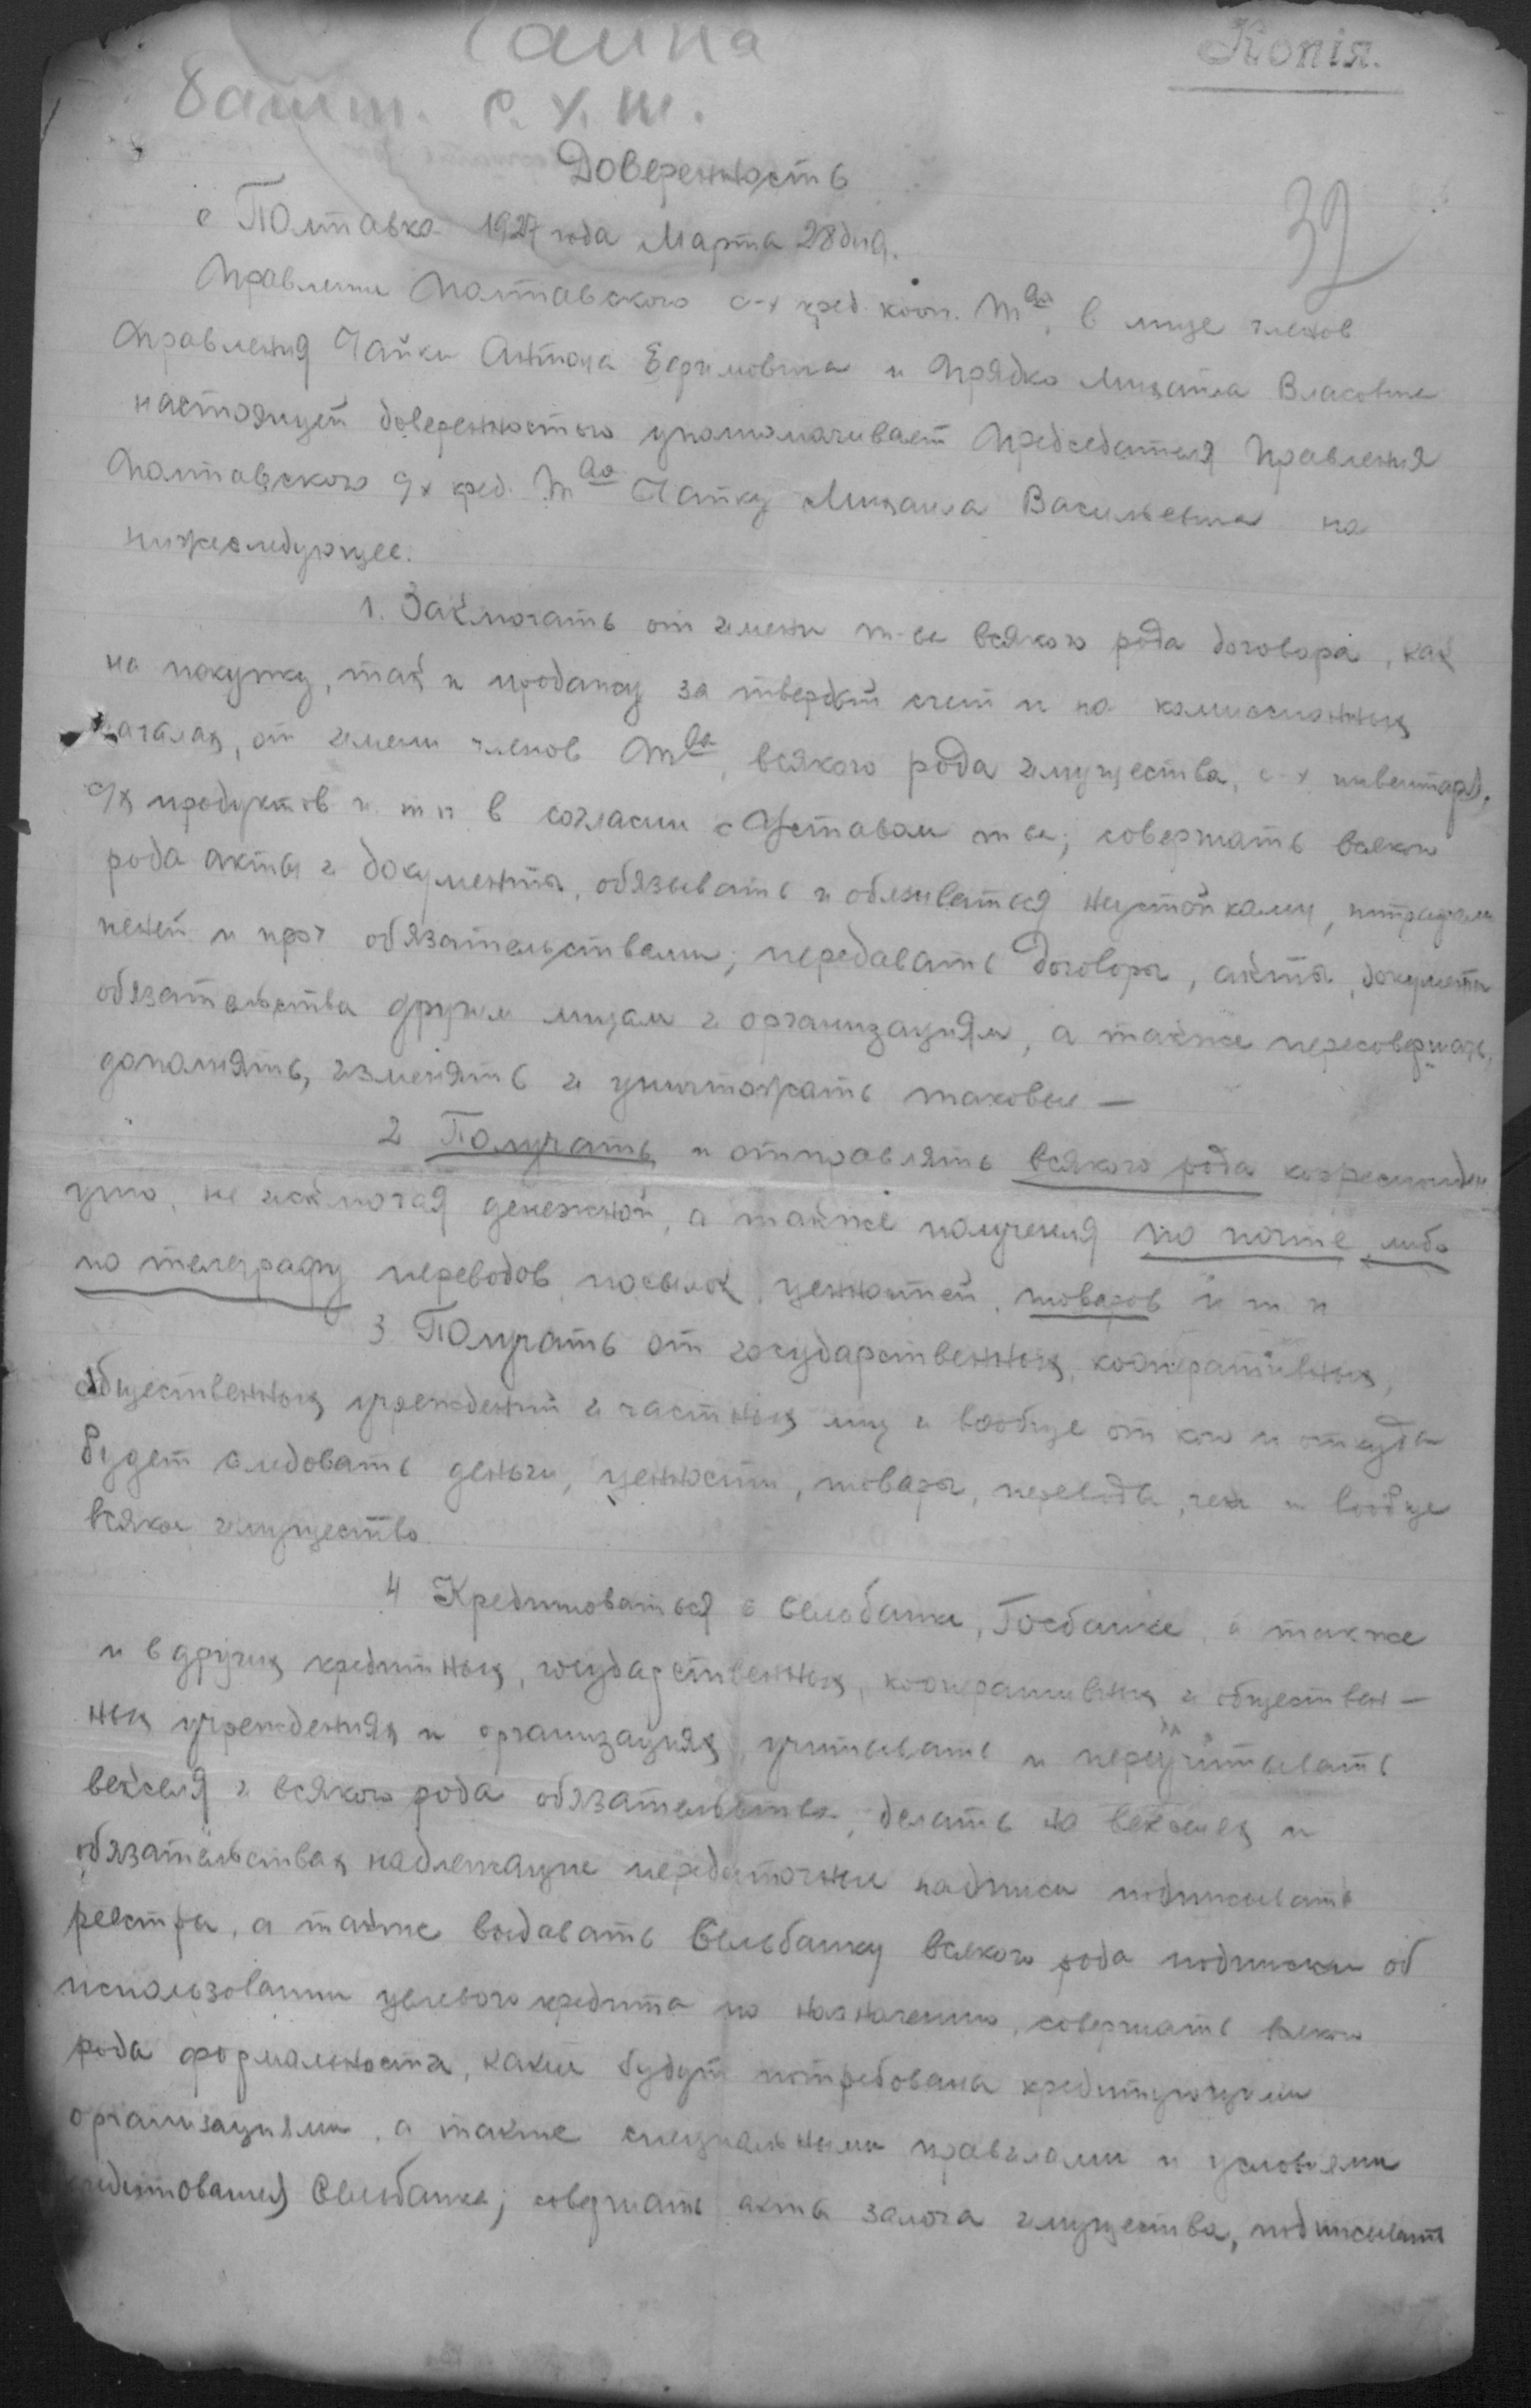 Копія.
Чайка
Башт. с. х. т.
Доверенность
32
с Полтавка 1927 года Марта 28 дня.
Правление Полтавского с-х кред. кооп. Т ва, в лице членов
правления Чайки Антона Ефимовича и Прядко Михаила Власовича
настоящей доверенностью уполномачивает Председателя Правления
Полтавского с/х кред. Т ва Чайку Михаила Васильевича на
нижеследующее.
1. Заключать от имени т-ва всякого рода договора, как
на покупку, так и продажу за твердый счет и на комиссионных
началах, от имени членов Т ва, всякого рода имущества, с-х инвентаря,
с/х продуктов и т п в согласии с Уставом т ва; совершать всякого
рода акты и документы, обязывать и обязываться неустойками, штрафами
пеней и проч обязательствами; передавать договоры, акты, документы
обязательства другим лицам и организациям, а также пересовершать,
дополнять, изменять и уничтожать таковые —
2 Получать и отправлять всякого рода корреспонден
цию, не исключая денежной, а также получения по почте либо
по телеграфу переводов, посылок, ценностей, товаров и т п
3 Получать от государственных, кооперативных,
общественных учреждений и частных лиц и вообще от кого и откуда
будет следовать деньги, ценности, товары, переводы, чеки и вообще
всякое имущество
4 Кредитоваться в Сельбанке, Госбанке, а также
и в других кредитных, государственных, кооперативных и обществен —
ных учреждениях и организациях, учитывать и переучитывать
векселя и всякого рода обязательства, делать на векселях и
обязательствах надлежащие передаточные надписи подписывать
реестры, а также выдавать Сельбанку всякого рода подписки об
использовании целевого кредита по назначению, совершать всякого
рода формальности, какие будут потребованы кредитующими
организациями, а также специальными правилами и условиями
кредитования Сельбанка; совершать акты залога имущества, подписывать